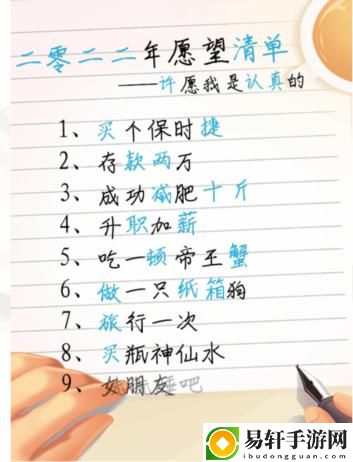 二零二二年愿望清单
——许愿我是认真的
1、买个保时捷
2、存款两万
3、成功减肥十斤
4、升职加薪
5、吃一顿帝王蟹
6、做一只纸箱狗
7、旅行一次
8、买瓶神仙水
9、
易轩手游网
ibudongguan.com